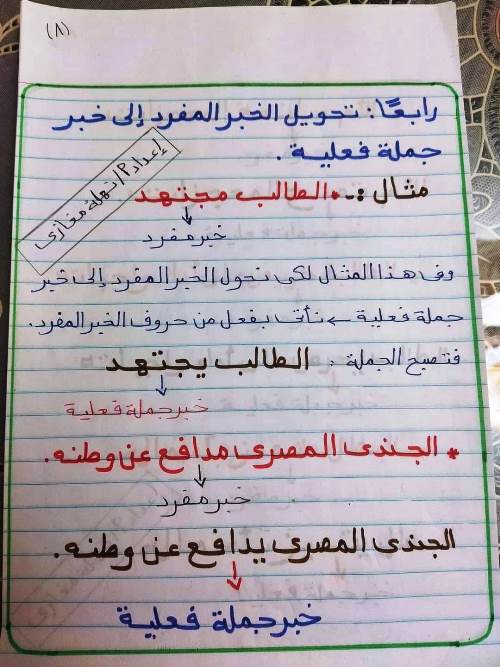 (٨)
رابعًا: تحويل الخبر المفرد إلى خبر
جملة فعلية.
إعداد م/ نهلة مغازى
مثال :- * الطالب مجتهد
خبر مفرد
وفى هذا المثال لكى نحول الخبر المفرد إلى خبر
جملة فعلية ← نأتى بفعل من حروف الخبر المفرد.
فتصبح الجملة : الطالب يجتهد
خبر جملة فعلية
* الجندى المصرى مدافع عن وطنه.
خبر مفرد
الجندى المصرى يدافع عن وطنه.
خبر جملة فعلية